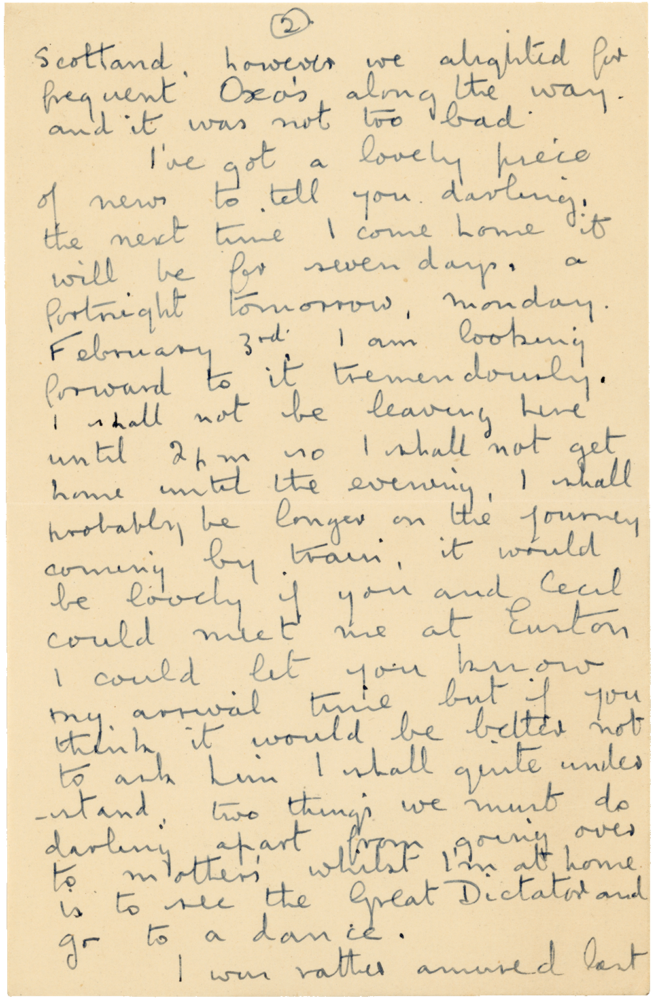 2
Scotland, however we alighted for
frequent Oxo's along the way.
and it was not too bad.
I've got a lovely piece
of news to tell you darling,
the next time I come home it
will be for seven days, a
fortnight tomorrow, monday.
February 3rd. I am looking
forward to it tremendously.
I shall not be leaving here
until 2pm so I shall not get
home until the evening, I shall
probably be longer on the journey
coming by train, it would
be lovely if you and Cecil
could meet me at Euston
I could let you know
my arrival time but if you
think it would be better not
to ask him I shall quite under
-stand, two things we must do
darling apart from going over
to mothers whilst I'm at home
is to see the Great Dictator and
go to a dance.
I was rather amused last